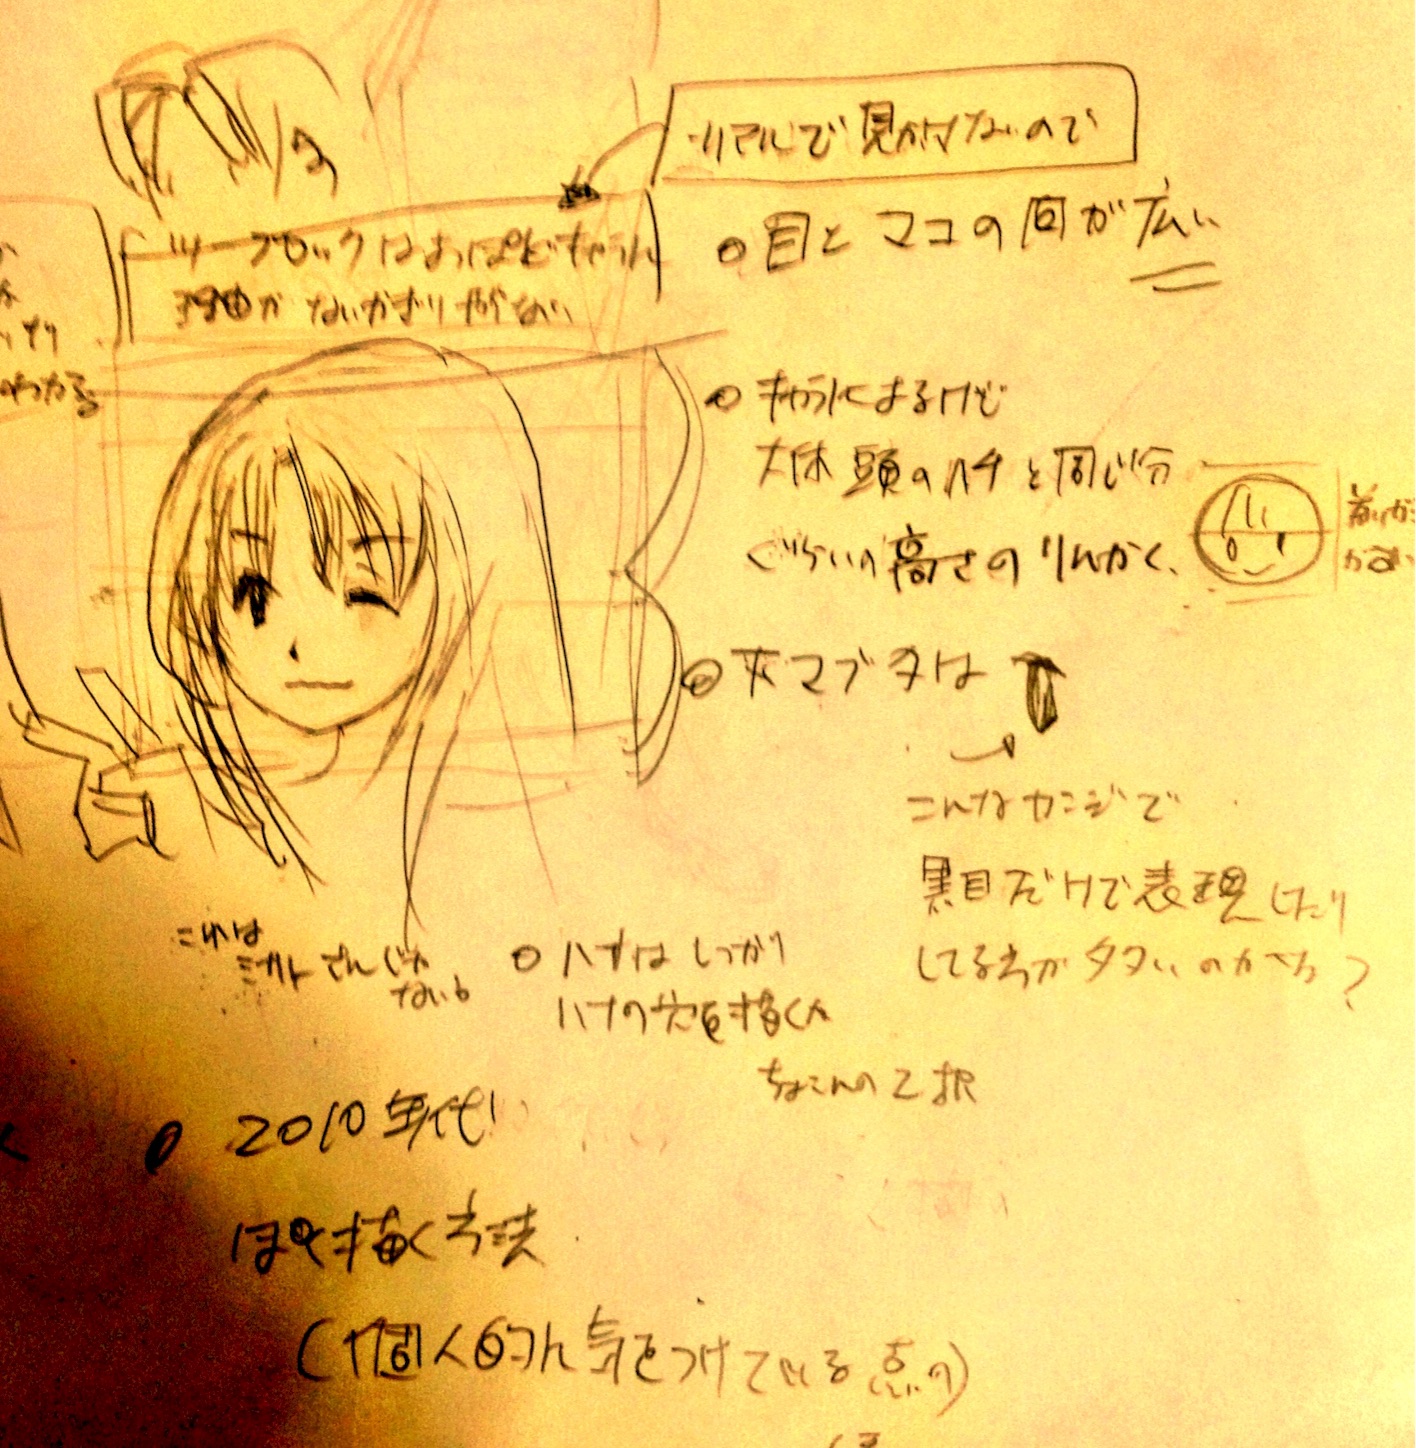 リアルで見かけないので
ツーブロックはよっぽどキャラに
理由がないかぎりやらない
目とマユの間が広い
キャラによるけど
大体頭のハチと同じ分
ぐらいの高さのりんかく、
マブタは
こんなカンジで
黒目だけで表現したり
してる方が多いのかも?
これは
じゃ
ないよ
ハナはしっかり
ハナの穴を描くか
ちょこんの2択
2010年代
ぽく描く方法
(個人的に気をつけている点の)